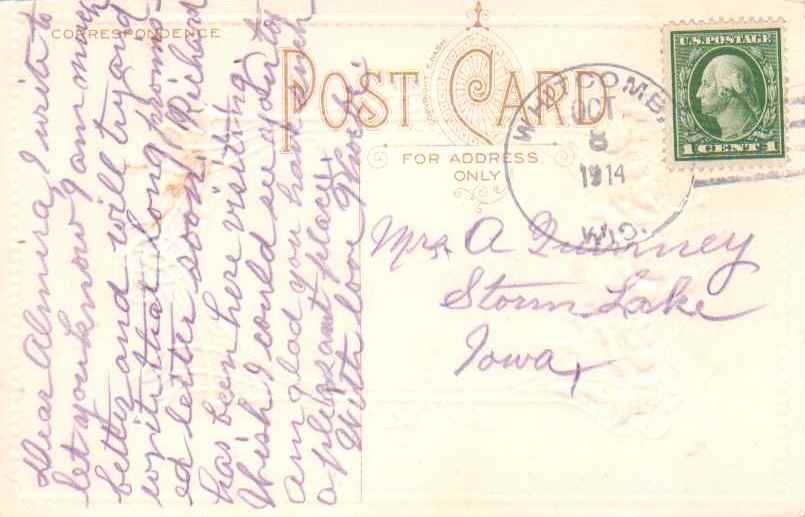 CORRESPONDENCE
POST CARD
FOR ADDRESS
ONLY
U.S. POSTAGE
1 CENT 1
OCT
8
1914
WIS.
Dear Almira, I write to
let you know I am much
better and will try and
write that long promis-
ed letter soon. Richard
has been here visiting
Wish I could see you too
am glad you have such
a pleasant place.
With love
Mrs. A Quinney
Storm Lake
Iowa,